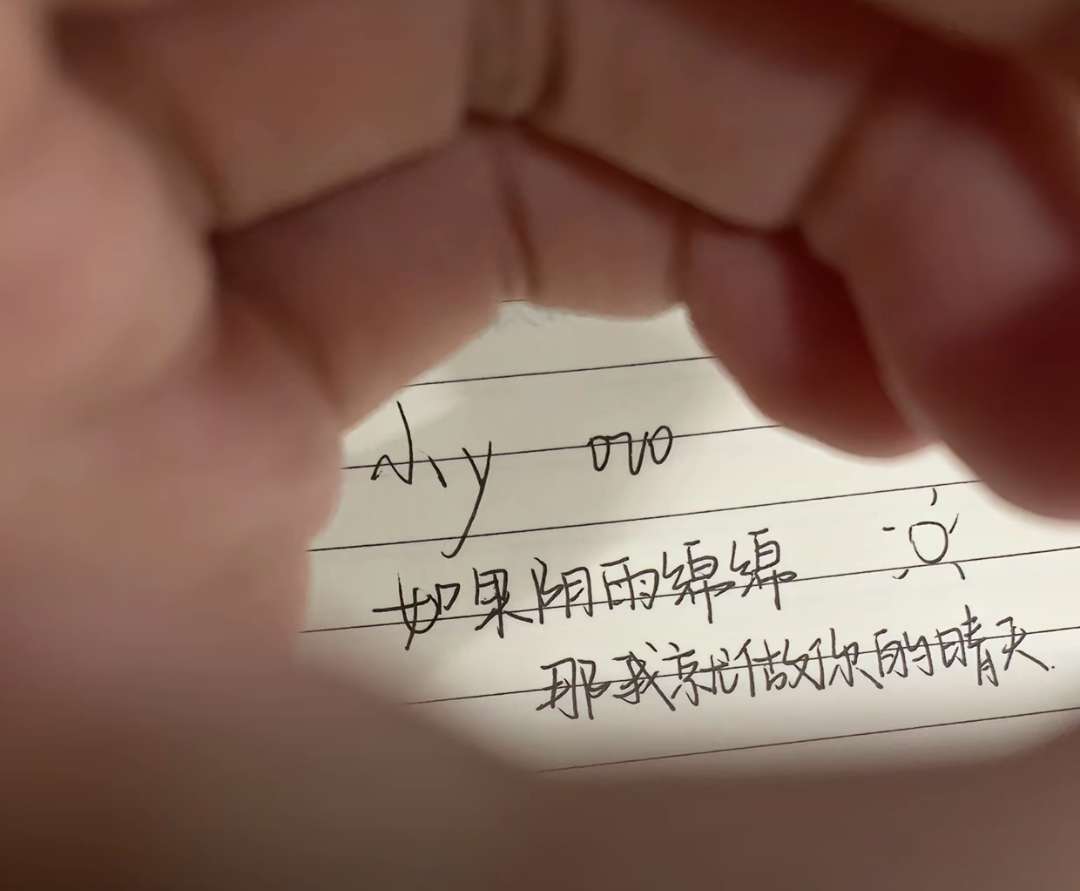 小y ovo
如果阴雨绵绵
那我就做你的晴天.